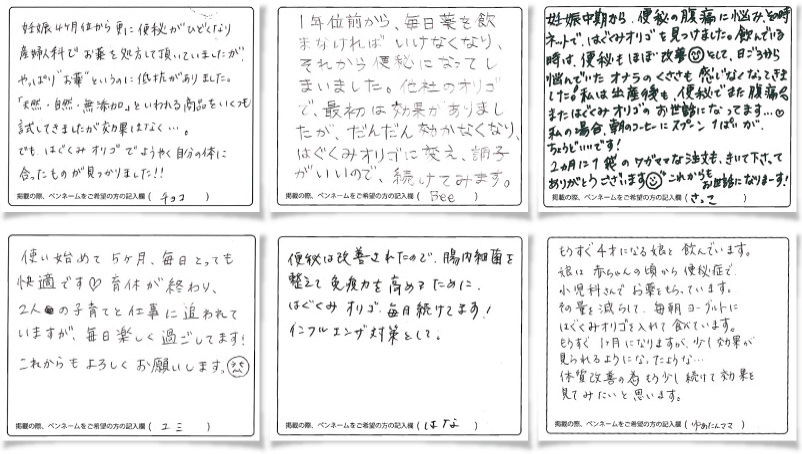 妊娠4ヶ月位から更に便秘がひどくなり
産婦人科でお薬を処方して頂いていましたが、
やっぱり"お薬"というのに抵抗がありました。
「天然・自然・無添加」といわれる商品をいくつも
試してきましたが効果はなく…。
でも、はぐくみオリゴでようやく自分の体に
合ったものが見つかりました!!
掲載の際、ペンネームをご希望の方の記入欄 ( チョコ )
1年位前から、毎日薬を飲
まなければいけなくなり、
それから便秘になってし
まいました。他社のオリゴ
で、最初は効果がありまし
たが、だんだん効かなくなり、
はぐくみオリゴに変え、調子
がいいので、続けてみます。
掲載の際、ペンネームをご希望の方の記入欄 ( Bee )
妊娠中期から、便秘の腹痛に悩み、その時
ネットで、はぐくみオリゴを見つけました。飲んでいる
時は、便秘もほぼ改善として、日ごろから
悩んでいたオナラのくささも感じなくなってきま
した。私は出産後も、便秘でまた腹痛
またはぐくみオリゴのお世話になってます…♡
私の場合、朝のコーヒーにスプーン1ぱいが、
ちょうどいいです!
2ヵ月に1袋のワガママな注文も、きいて下さって
ありがとうございます これからも
お世話になりまーす!
掲載の際、ペンネームをご希望の方の記入欄 ( さっこ )
使い始めて5ヶ月、毎日とっても
快適です♡ 育休が終わり、
2人の子育てと仕事に追われて
いますが、毎日楽しく過ごしてます!
これからもよろしくお願いします。
掲載の際、ペンネームをご希望の方の記入欄 ( ユミ )
便秘は改善されたので、腸内細菌を
整えて免疫力を高めるために、
はぐくみオリゴ、毎日続けてます!
インフルエンザ対策として。
掲載の際、ペンネームをご希望の方の記入欄 ( はな )
もうすぐ4才になる娘と飲んでいます。
娘は赤ちゃんの頃から便秘症で、
小児科さんでお薬をもらっています。
その量を減らして、毎朝ヨーグルトに
はぐくみオリゴを入れて食べています。
もうすぐ1ヶ月になりますが、少し効果が
見られるようになったような…
体質改善の為もう少し続けて効果を
見てみたいと思います。
掲載の際、ペンネームをご希望の方の記入欄 ( ゆめたんママ )